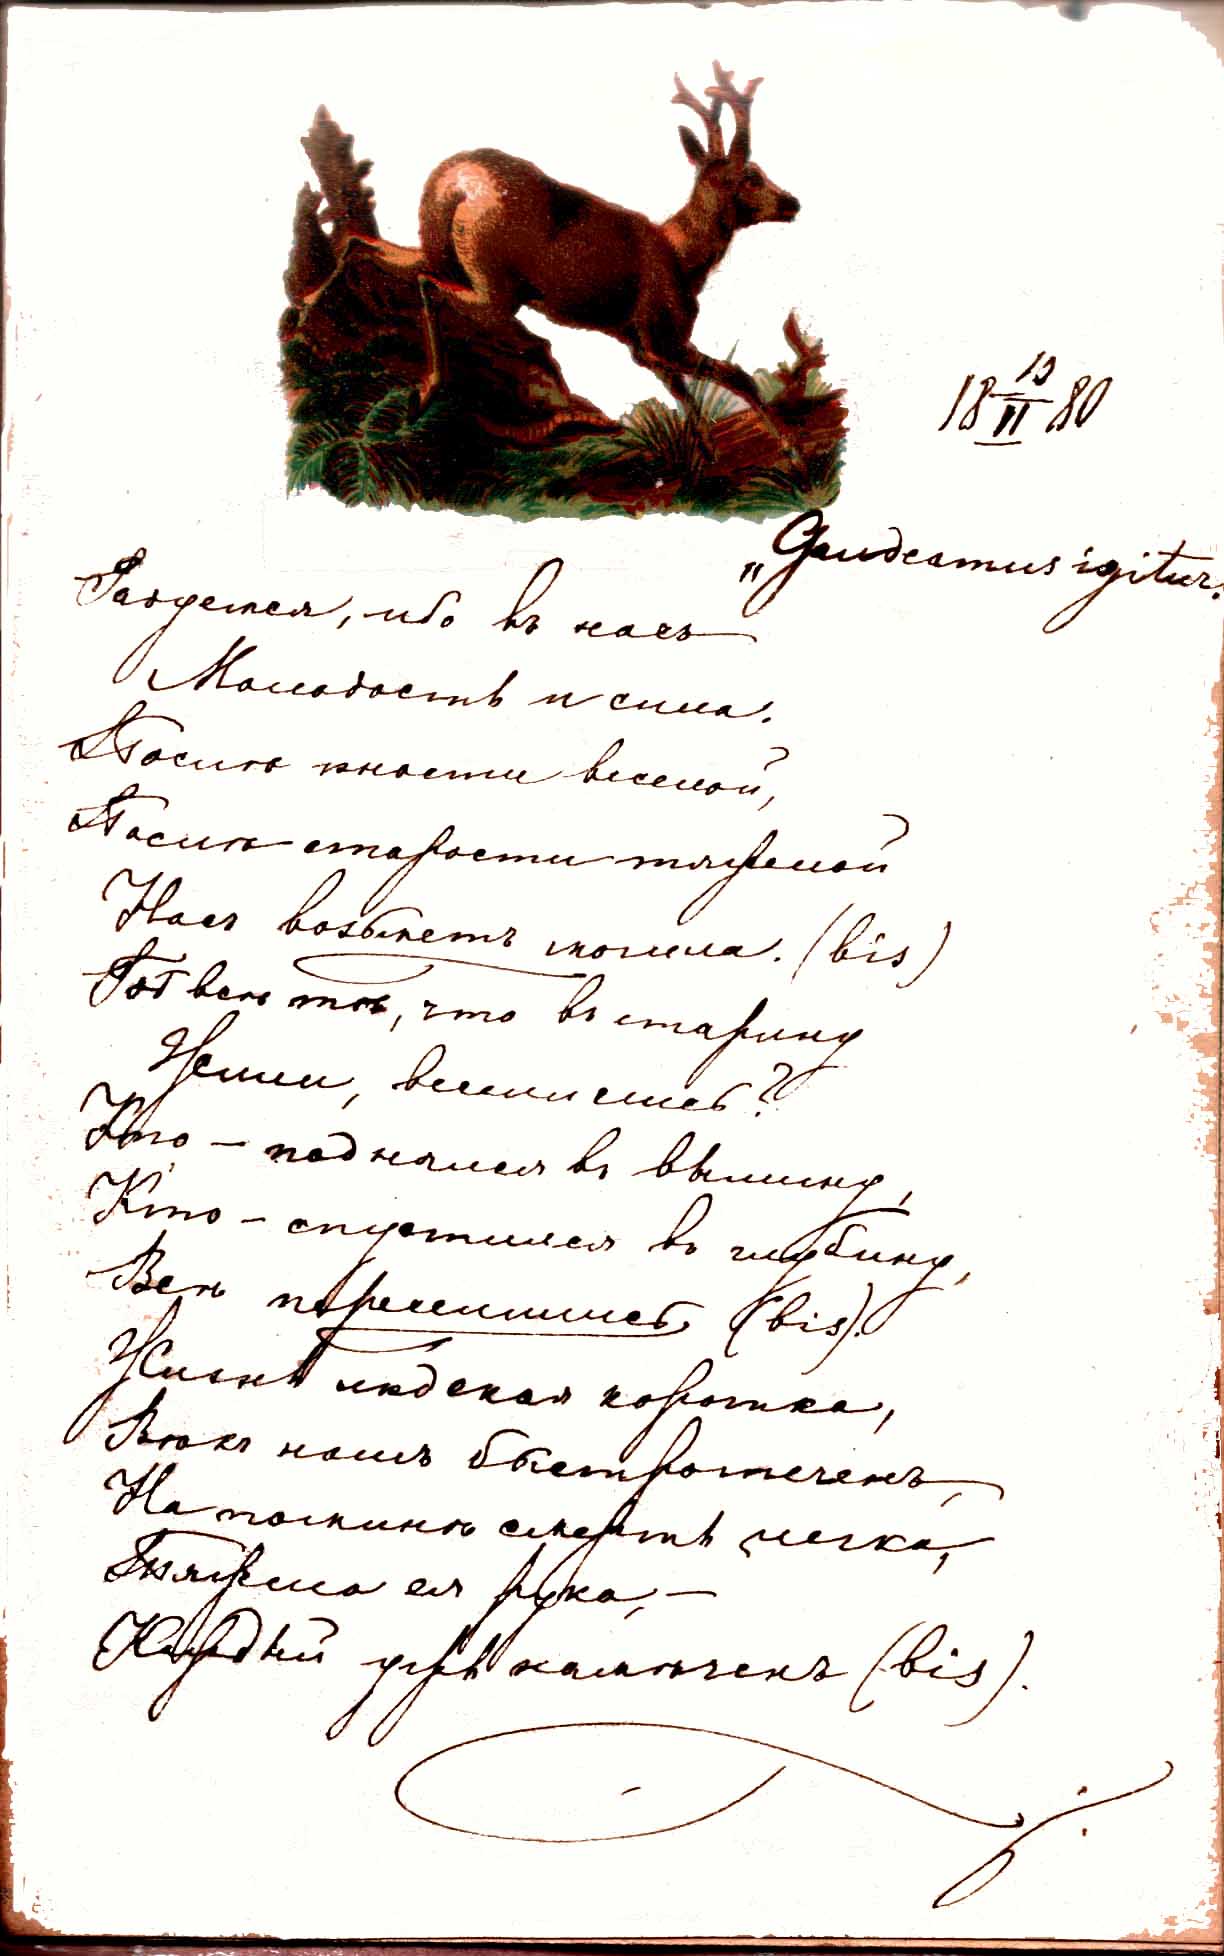 18 19/II 80
„Gaudeamus igitur.
Радуемся, ибо въ насъ
Молодость и сила.
Послѣ юности веселой,
Послѣ старости тяжелой
Насъ возьметъ могила. (bis)
Гдѣ всѣ тѣ, что въ старину
Жили, веселились?
Кто – поднялся въ вышину,
Кто – спустился въ глубину,
Всѣ переселились (bis).
Жизнь людская коротка,
Вѣкъ нашъ быстротеченъ,
На поминѣ смерть легка,
Тяжела ея рука, –
Каждый ужь намѣченъ (bis).